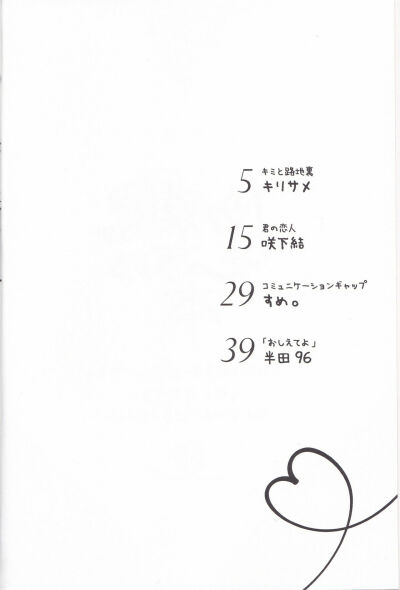 5 キミと路地裏
キリサメ
15 君の恋人
咲下結
29 コミュニケーションギャップ
すめ。
39 「おしえてよ」
半田96